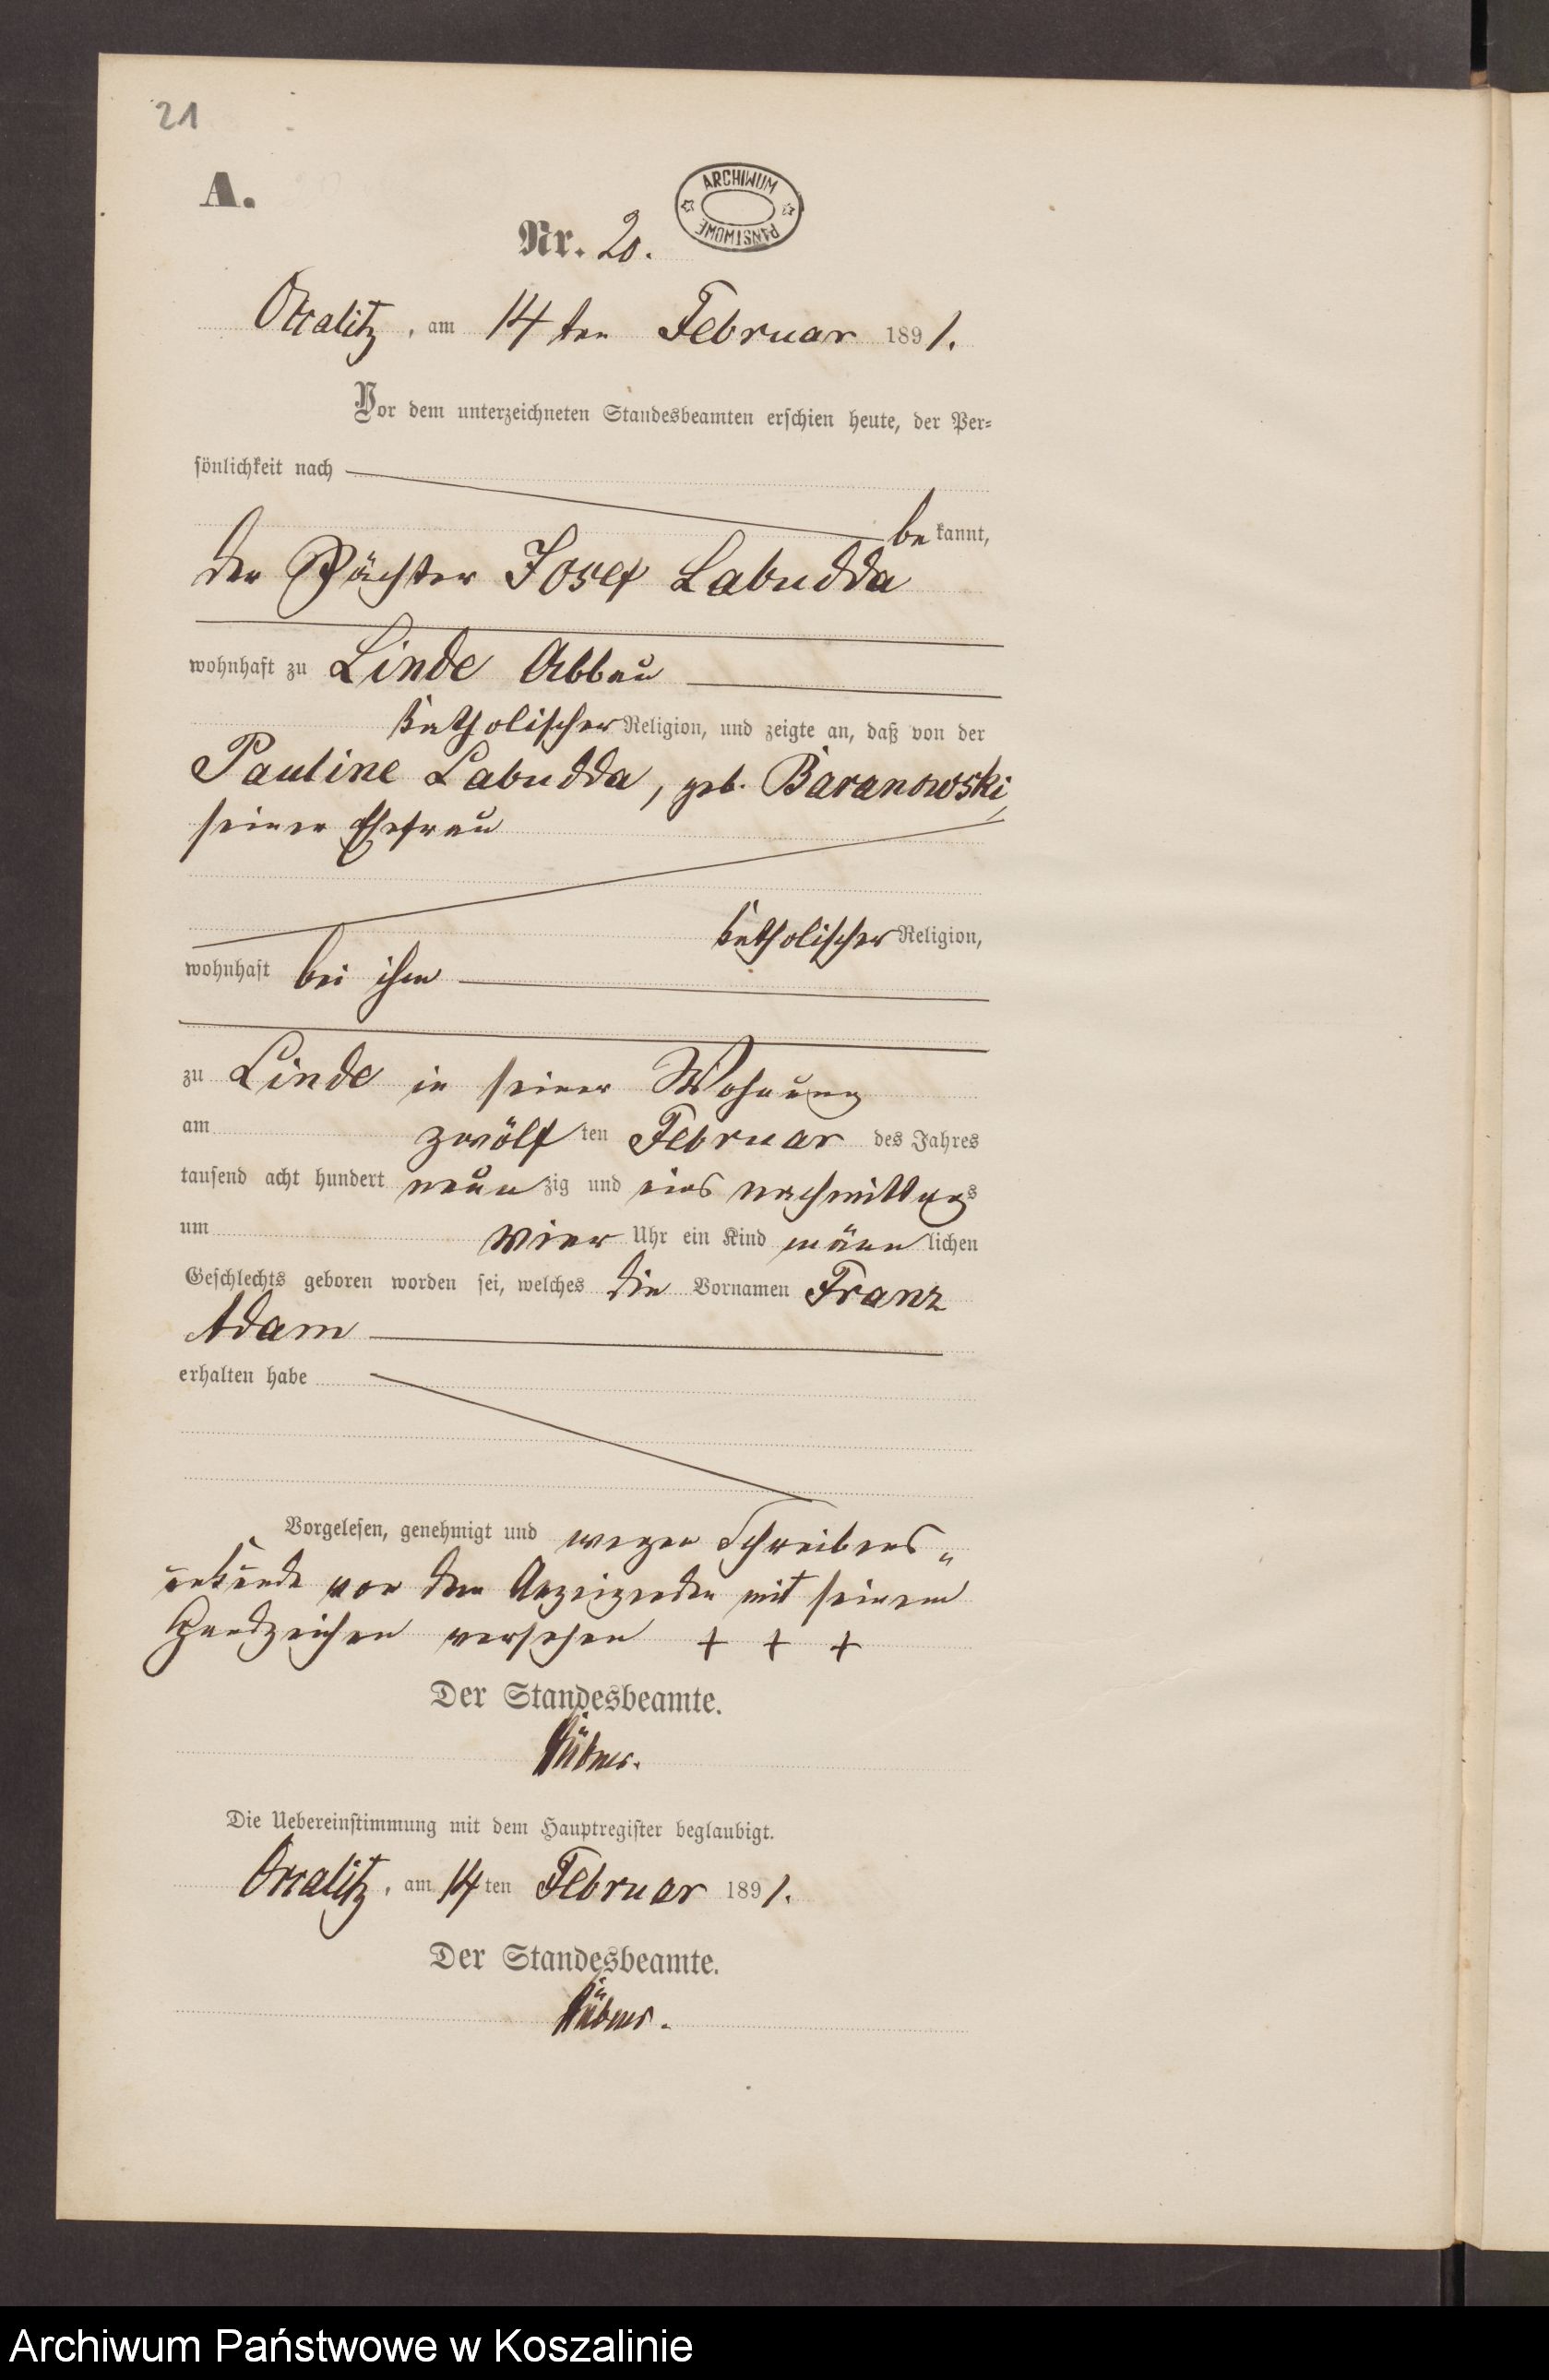 21
A.
ARCHIWUM PAŃSTWOWE
Nr. 20.
am 14 ten Februar 1891.
Vor dem unterzeichneten Standesbeamten erschien heute, der Per-
sönlichkeit nach
be kannt,
der Pächter Josef Labudda
wohnhaft zu Linde Abbau
katholischer Religion, und zeigte an, daß von der
Pauline Labudda, geb. Baranowski,
seiner Ehefrau
katholischer Religion,
wohnhaft bei ihm
zu Linde in seiner Wohnung
am zwölf ten Februar des Jahres
tausend acht hundert neun zig und eins nachmittags
um vier Uhr ein Kind männ lichen
Geschlechts geboren worden sei, welches die Vornamen Franz
Adam
erhalten habe
Vorgelesen, genehmigt und wegen Schreibens-
unkunde von dem Anzeigenden mit seinem
Handzeichen versehen + + +
Der Standesbeamte.
Die Uebereinstimmung mit dem Hauptregister beglaubigt.
am 14 ten Februar 1891.
Der Standesbeamte.
Archiwum Państwowe w Koszalinie